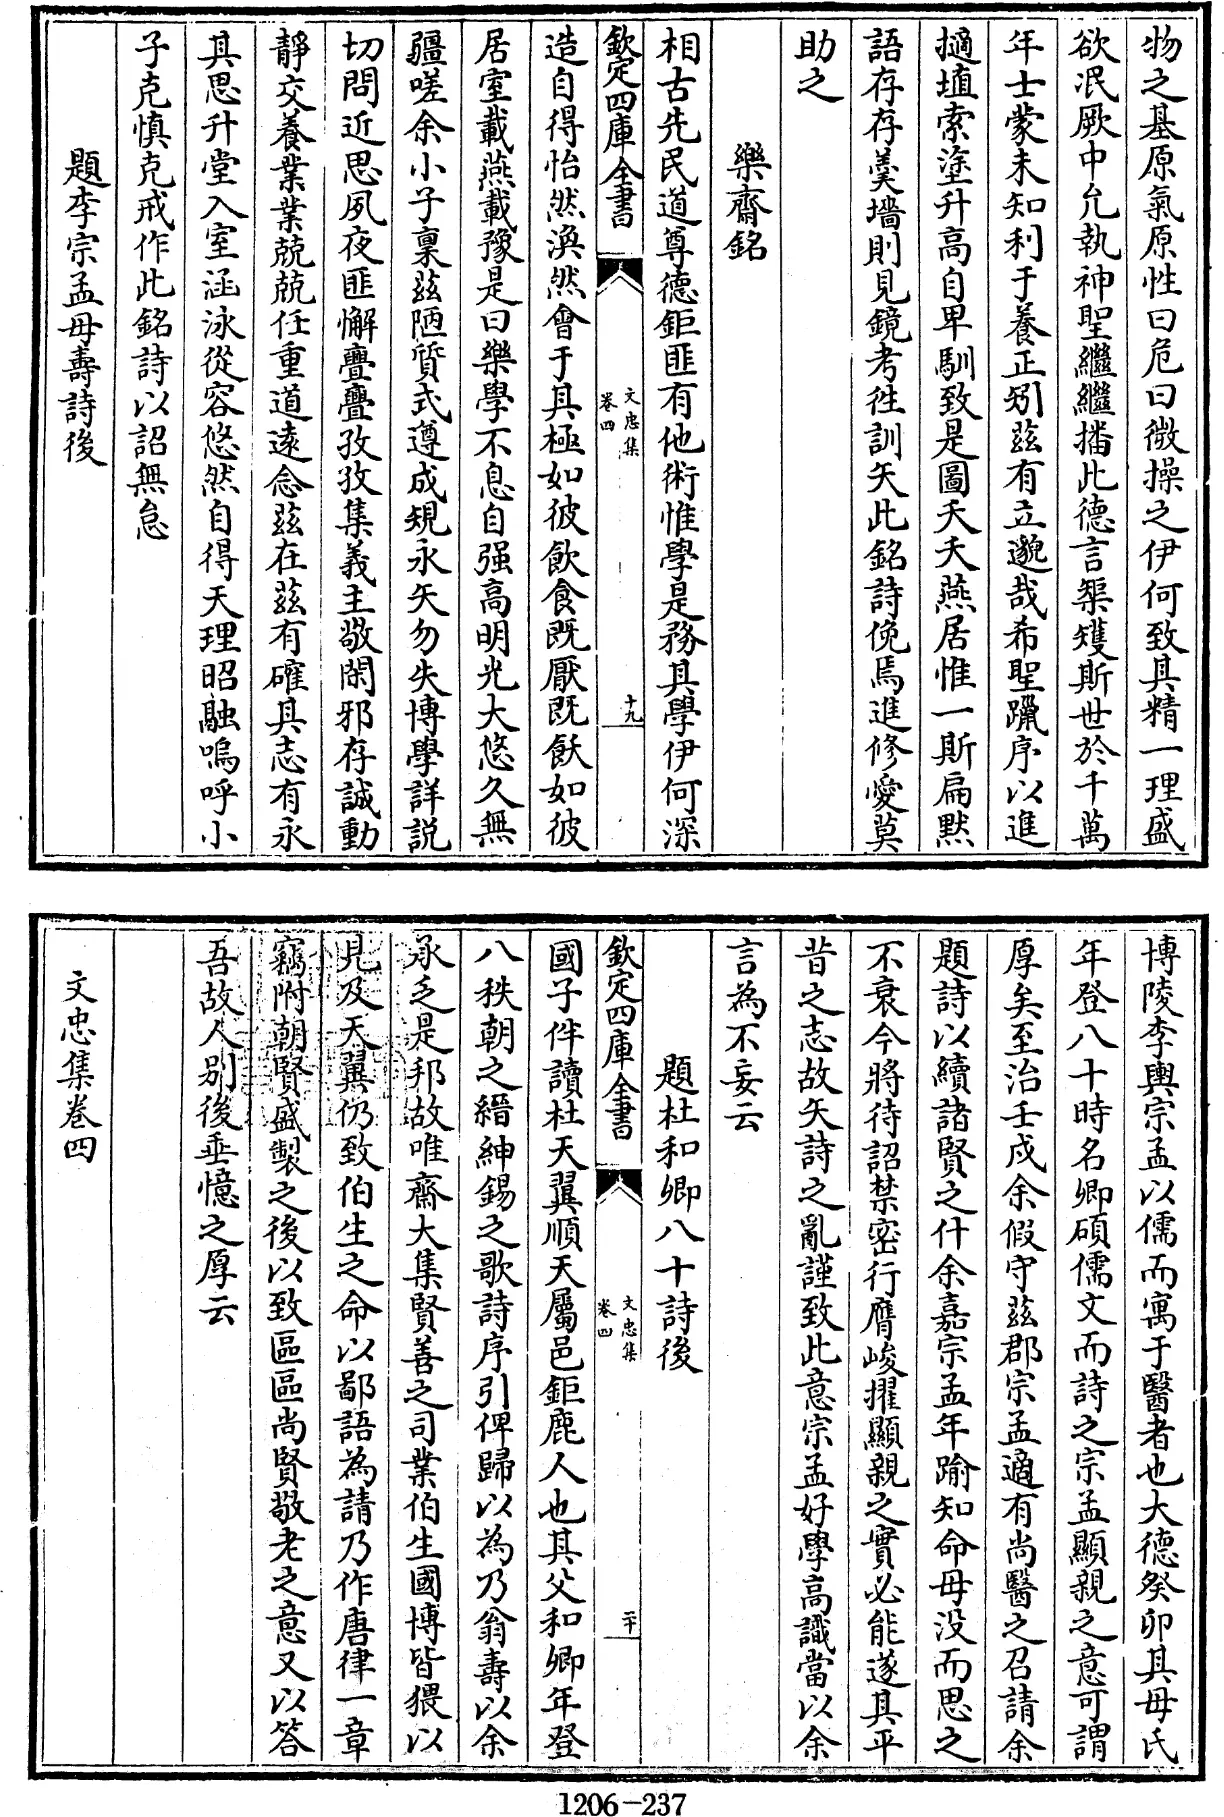 物之基原氣原性曰危曰微操之伊何致其精一理盛
欲泯厥中允執神聖繼繼播此德言榘矱斯世於千萬
年士蒙未知利于養正矧茲有立邈哉希聖躐序以進
擿埴索塗升高自卑馴致是圖夭夭燕居惟一斯扁默
語存存羮墻則見鏡考徃訓矢此銘詩俛焉進修愛莫
助之
樂齋銘
相古先民道尊德鉅匪有他術惟學是務其學伊何深
欽定四庫全書
文忠集
卷四
十九
造自得怡然渙然會于其極如彼飲食既厭既飫如彼
居室載燕載豫是曰樂學不息自强高明光大悠久無
疆嗟余小子稟茲陋質式遵成規永矢勿失博學詳説
切問近思夙夜匪懈亹亹孜孜集義主敬閑邪存誠動
靜交養業業兢兢任重道遠念茲在茲有確其志有永
其思升堂入室涵泳從容悠然自得天理昭融嗚呼小
子克慎克戒作此銘詩以詔無怠
題李宗孟母壽詩後
博陵李輿宗孟以儒而寓于醫者也大德癸卯其母氏
年登八十時名卿碩儒文而詩之宗孟顯親之意可謂
厚矣至治壬戌余假守茲郡宗孟適有尚醫之召請余
題詩以續諸賢之什余嘉宗孟年踰知命母没而思之
不衰今將待詔禁密行膺峻擢顯親之實必能遂其平
昔之志故矢詩之亂謹致此意宗孟好學高識當以余
言為不妄云
題杜和卿八十詩後
欽定四庫全書
文忠集
卷四
二十
國子伴讀杜天翼順天屬邑鉅鹿人也其父和卿年登
八秩朝之縉紳錫之歌詩序引俾歸以為乃翁壽以余
承乏是邦故唯齋大集賢善之司業伯生國博皆猥以
見及天翼仍致伯生之命以鄙語為請乃作唐律一章
竊附朝賢盛製之後以致區區尚賢敬老之意又以答
吾故人别後垂憶之厚云
文忠集卷四
1206-237